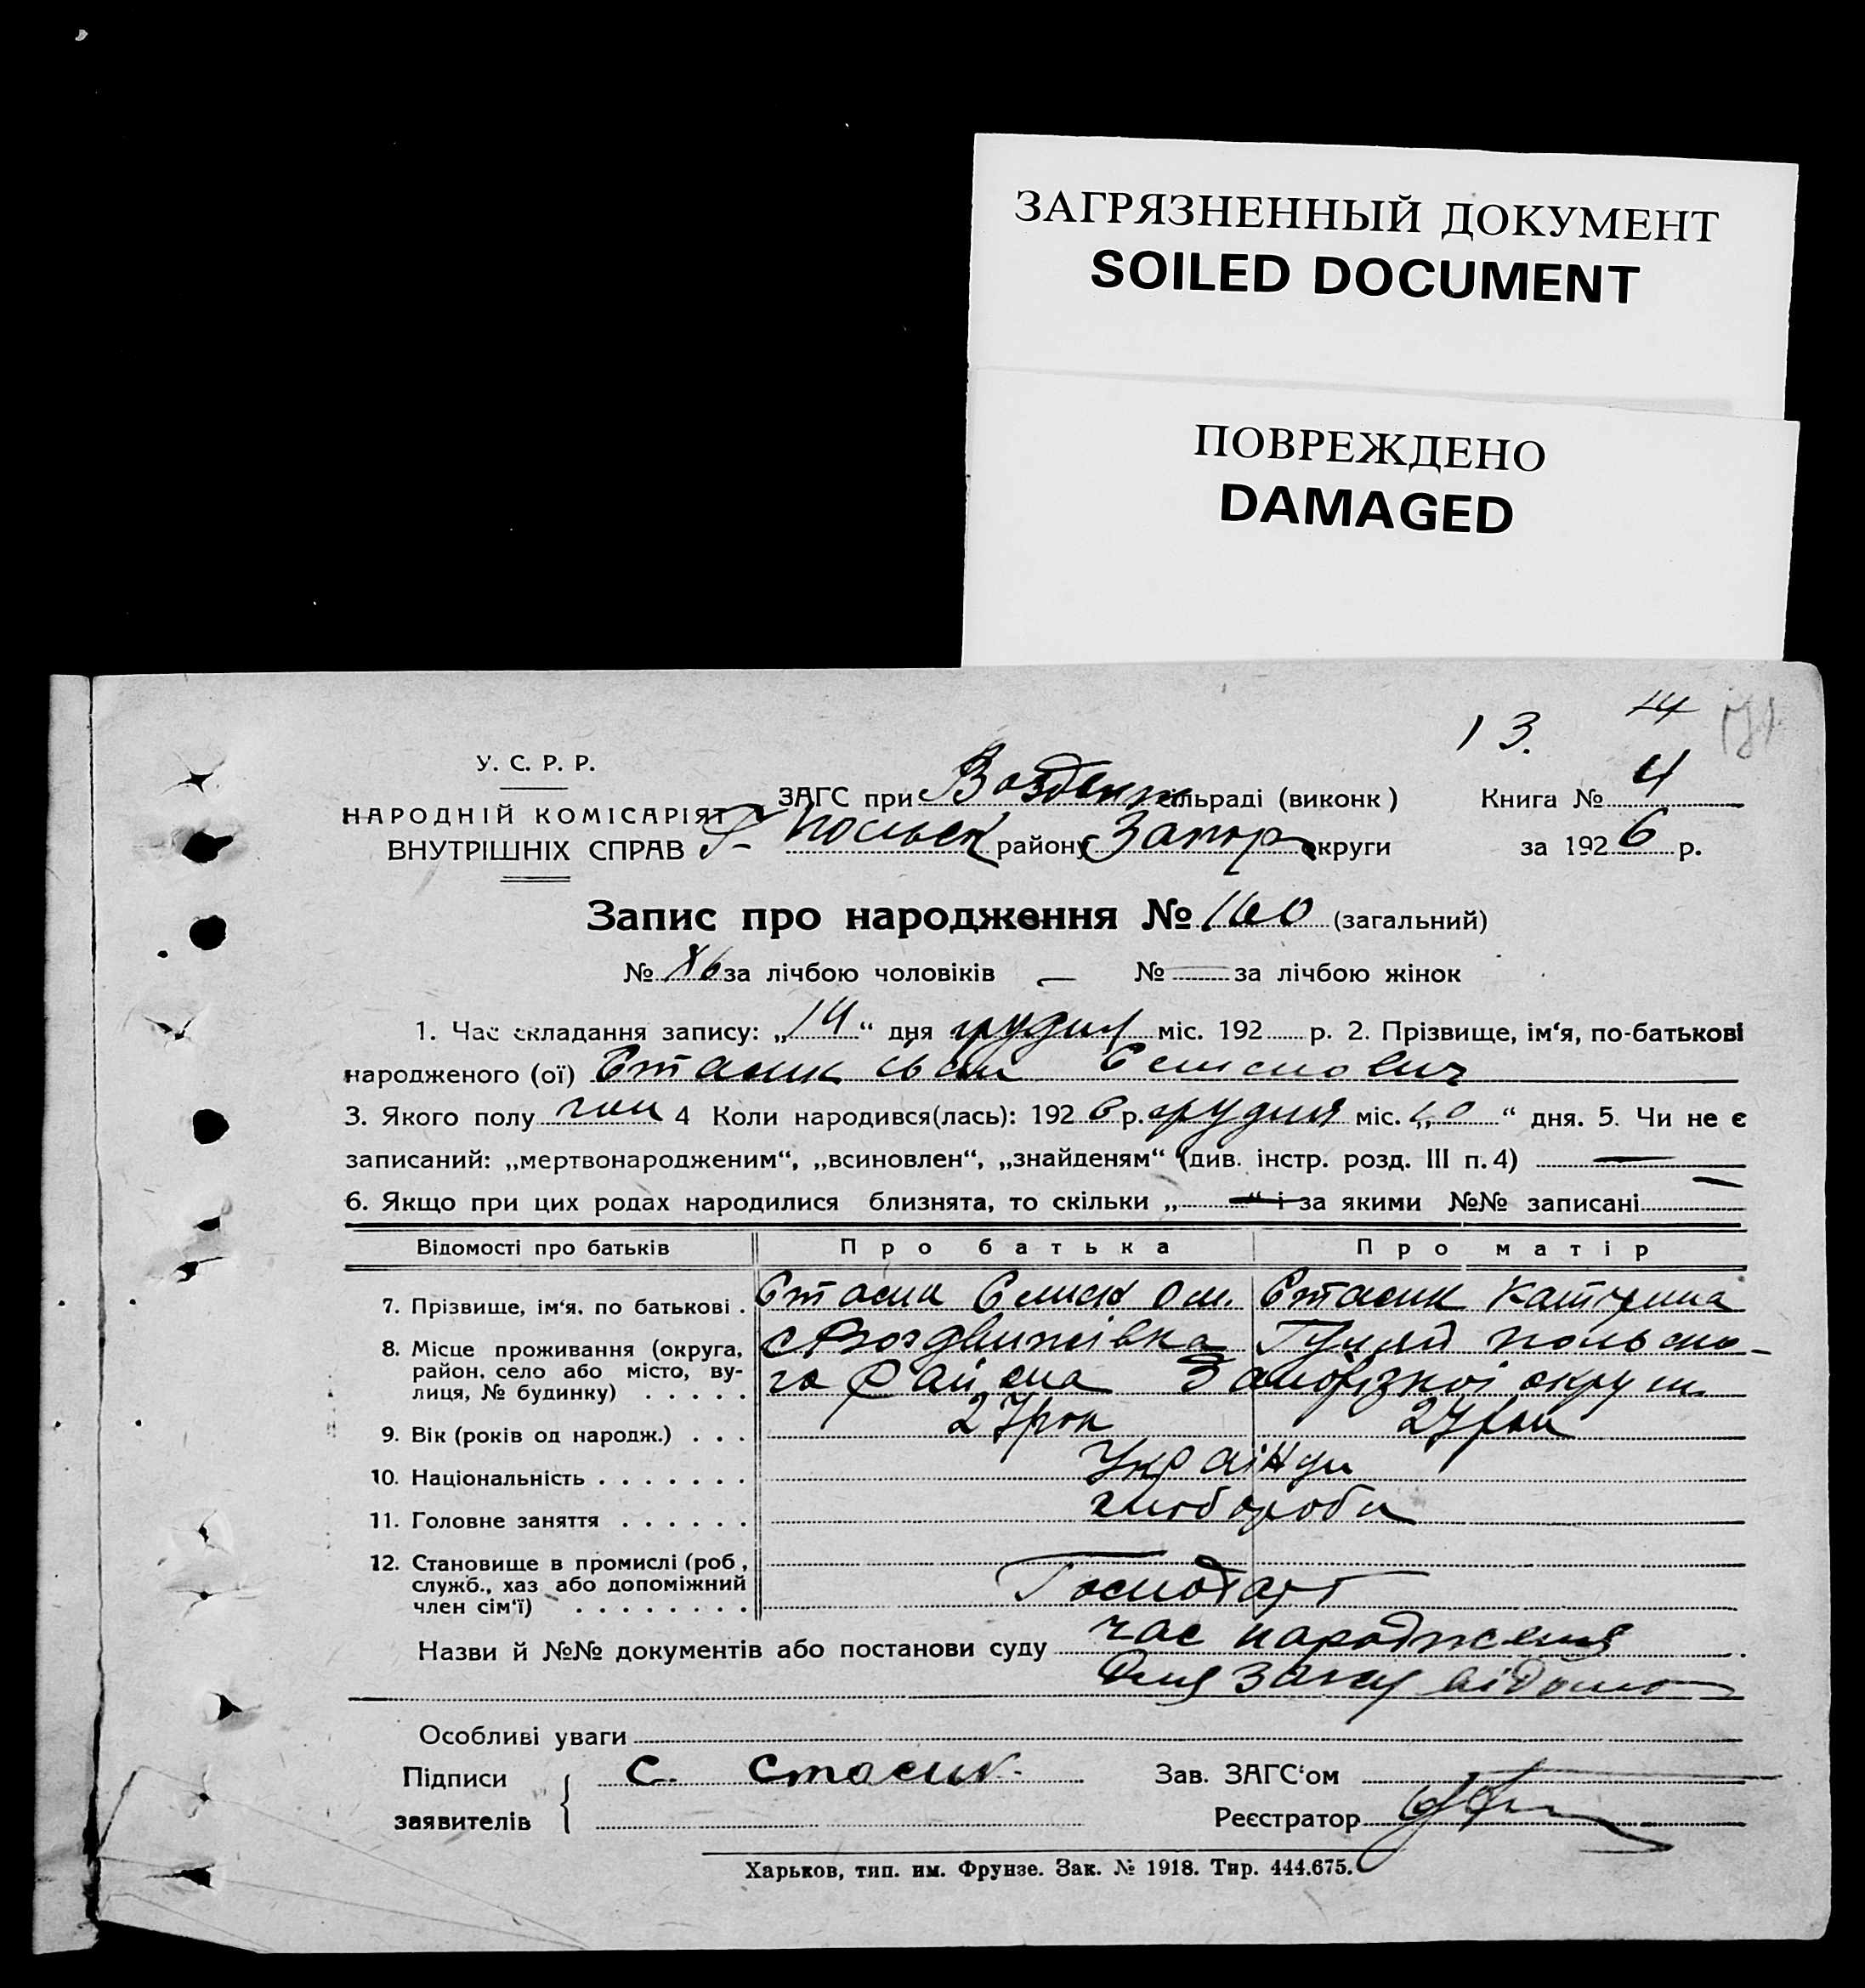 ЗАГРЯЗНЕННЫЙ ДОКУМЕНТ
SOILED DOCUMENT
ПОВРЕЖДЕНО
DAMAGED
13. 14
У. С. Р. Р.
НАРОДНІЙ КОМІСАРІЯТ
ВНУТРІШНІХ СПРАВ
ЗАГС при Воздвиж сільраді (виконк) Книга № 4
Г- Польск району Запор округи за 1926 р.
Запис про народження № 160 (загальний)
№ 86 за лічбою чоловіків — № — за лічбою жінок
1. Час складання запису: „14“ дня грудня міс. 192 р. 2. Прізвище, ім‘я, по-батькові
народженого (ої) Стасик Іван Семенович
3. Якого полу чол 4 Коли народився(лась): 1926 р. грудня міс. „10“ дня. 5. Чи не є
записаний: „мертвонародженим“, „всиновлен“, „знайденям“ (див. інстр. розд. III п. 4) —
6. Якщо при цих родах народилися близнята, то скільки „ “ і за якими №№ записані —
Відомості про батьків Про батька Про матір
7. Прізвище, ім‘я, по батькові . Стасик Семен Стасик Катерина
8. Місце проживання (округа, район, село або місто, вулиця, № будинку) . . . . . с Воздвижівка Гуляй польсько-
го району Запорізької округи
9. Вік (років од народж.) . . . 27 рок 27 рок
10. Національність . . . . . . . Українці
11. Головне заняття . . . . . . хлібороби
12. Становище в промислі (роб., служб., хаз або допоміжний член сім‘ї) . . . . . . . . Господарі
Назви й №№ документів або постанови суду час народження
для загсу відомо
Особливі уваги
Підписи заявителів { С. Стасик. Зав. ЗАГС‘ом
Реєстратор
Харьков, тип. им. Фрунзе. Зак. № 1918. Тир. 444.675.